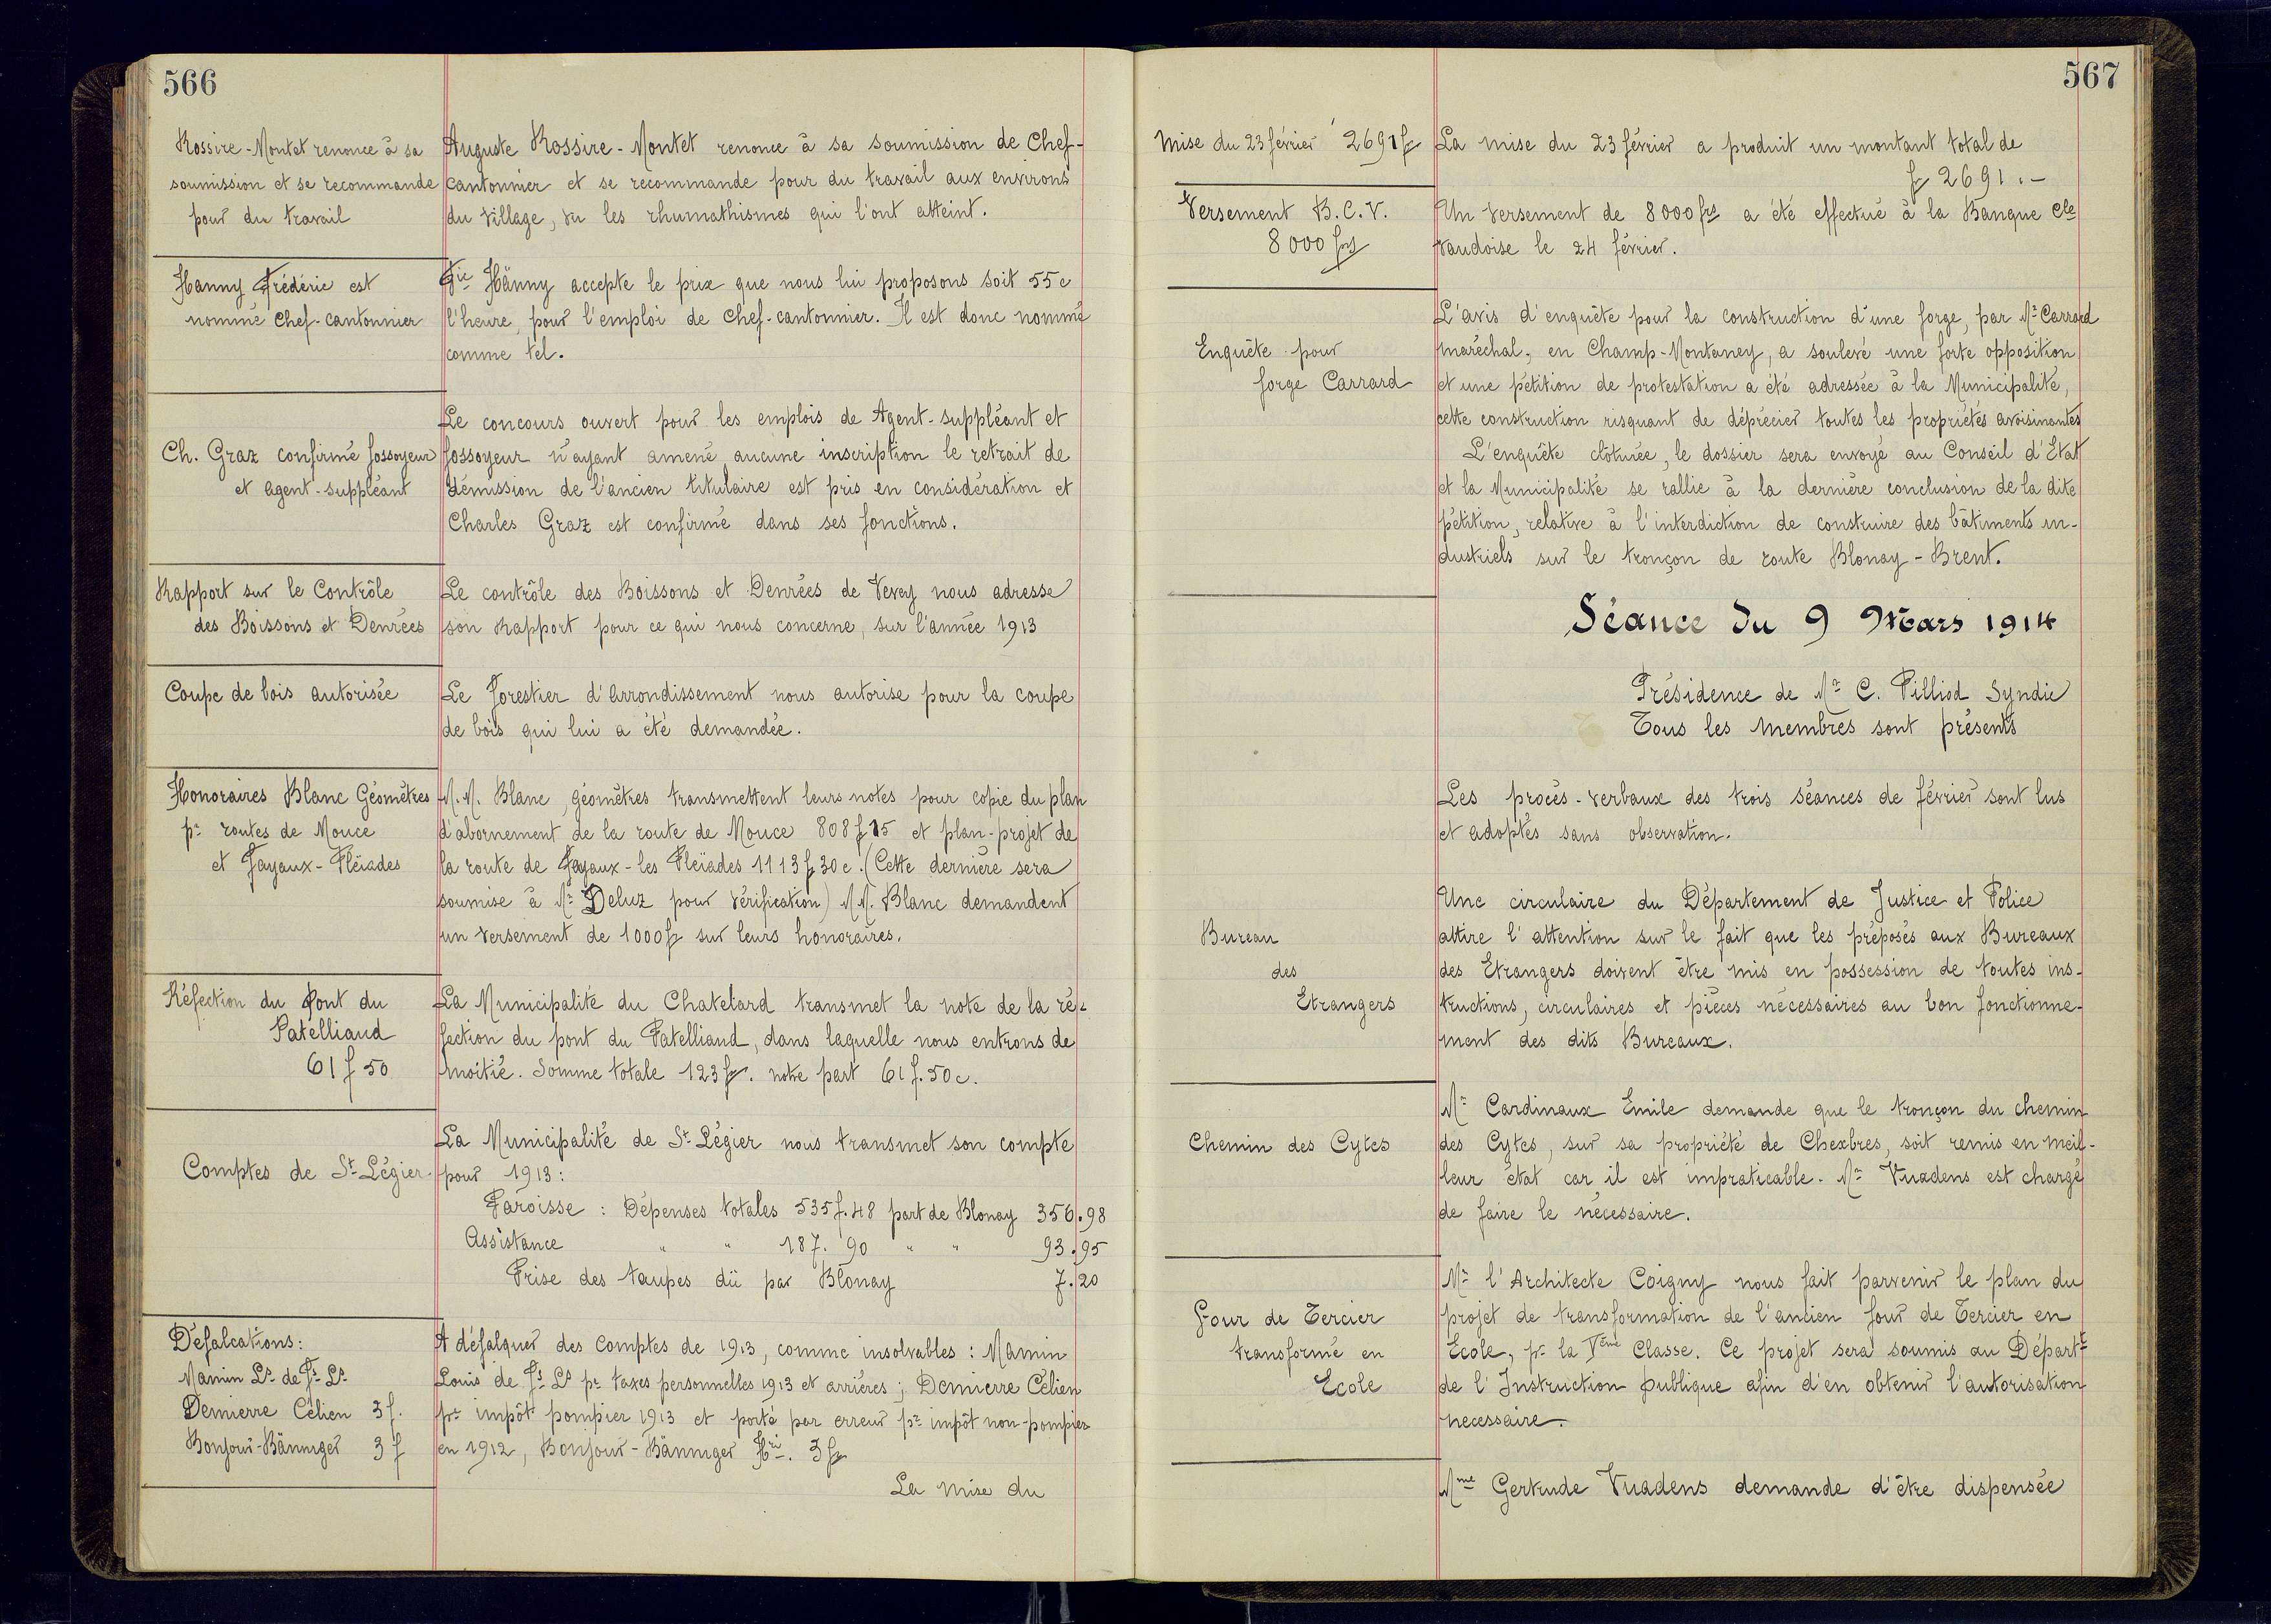 566
Rossire-Montet renonce à sa
soumission et se recommande
pour du travail
Auguste Rossire-Montet renonce à sa soumission de Chef-
cantonnier et se recommande pour du travail aux environs
du village, vu les rhumathismes qui l'ont atteint.
Hanny Frédéric est
nommé Chef-cantonnier
Fic Hänny accepte le prix que nous lui proposons soit 55c
l'heure, pour l'emploi de Chef-cantonnier. Il est donc nommé
comme tel.
Ch. Graz confirmé fossoyeur
et agent-suppléant
Le concours ouvert pour les emplois de Agent-suppléant et
fossoyeur n'ayant amené aucune inscription le retrait de
démission de l'ancien titulaire est pris en considération et
Charles Graz est confirmé dans ses fonctions.
Rapport sur le Contrôle
des Boissons et Denrées
Le contrôle des Boissons et Denrées de Vevey nous adresse
son Rapport pour ce qui nous concerne, sur l'année 1913
Coupe de bois autorisée
Le forestier d'arrondissement nous autorise pour la coupe
de bois qui lui a été demandée.
Honoraires Blanc Géomètres
pr routes de Mouce
et Fayaux-Pléiades
M.M. Blanc, géomètres transmettent leurs notes pour copie du plan
d'abornement de la route de Mouce 808f 15 et plan-projet de
la route de Fayaux-les Pleïades 1113f 30c. (Cette dernière sera
soumise à Mr Deluz pour vérification) MM. Blanc demandent
un versement de 1000fr sur leurs honoraires.
Réfection du Pont du
Patelliaud
61f 50
La Municipalité du Chatelard transmet la note de la ré-
fection du pont du Patelliaud, dans laquelle nous entrons de
moitié. Somme totale 123fr. notre part 61f.50c.
Comptes de St-Légier
La Municipalité de St-Légier nous transmet son compte
pour 1913:
Paroisse : Dépenses totales 535f.48 part de Blonay 356.98
Assistance " " 187.90 " " 93.95
Prise des taupes dû par Blonay 7.20
Défalcations:
Mamin Ls de Fs Ls
Demierre Célien 3f.
Bonjour-Bänniger 3f
A défalquer des Comptes de 1913, comme insolvables : Mamin
Louis de Fs Ls pr taxes personnelles 1913 et arriérés ; Demierre Célien
pr impôt pompier 1913 et porté par erreur pr impôt non-pompier
en 1912, Bonjour-Bänniger Hri. 3fr
La mise du
567
Mise du 23 février 2691fr
La mise du 23 février a produit un montant total de
fr 2691.-
Versement B.C.V.
8000 frs
Un versement de 8000 frs a été effectué à la Banque Cle
Vaudoise le 24 février.
Enquête pour
forge Carrard
L'avis d'enquête pour la construction d'une forge, par Mr Carrard
maréchal, en Champ-Montaney, a soulevé une forte opposition
et une pétition de protestation a été adressée à la Municipalité,
cette construction risquant de déprécier toutes les propriétés avoisinantes
L'enquête clôturée, le dossier sera envoyé au Conseil d'Etat
et la Municipalité se rallie à la dernière conclusion de la dite
pétition, relative à l'interdiction de construire des bâtiments in-
dustriels sur le tronçon de route Blonay-Brent.
Séance du 9 Mars 1914
Présidence de Mr C. Pilliod Syndic
Tous les membres sont présents
Les procès-verbaux des trois séances de février sont lus
et adoptés sans observation.
Bureau
des
Etrangers
Une circulaire du Département de Justice et Police
attire l'attention sur le fait que les préposés aux Bureaux
des Etrangers doivent être mis en possession de toutes ins-
tructions, circulaires et pièces nécessaires au bon fonctionne-
ment des dits Bureaux.
Chemin des Cytes
Mr Cardinaux Emile demande que le tronçon du chemin
des Cytes, sur sa propriété de Chexbres, soit remis en meil-
leur état car il est impraticable. Mr Vuadens est chargé
de faire le nécessaire.
Four de Tercier
transformé en
Ecole
Mr l'Architecte Coigny nous fait parvenir le plan du
projet de transformation de l'ancien four de Tercier en
Ecole, pr la Vème Classe. Ce projet sera soumis au Départt
de l'Instruction publique afin d'en obtenir l'autorisation
necessaire.
Mme Gertrude Vuadens demande d'être dispensée